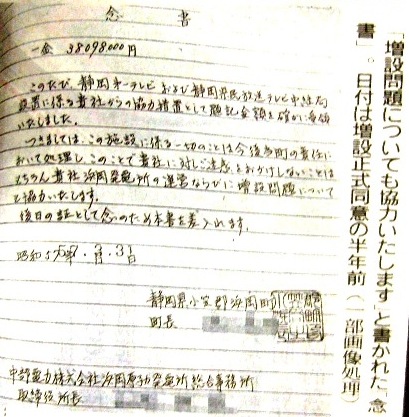 念書
一金 38098000円
このたび、静岡第一テレビおよび静岡県民放送テレビ中継局
設置に係る貴社からの協力措置として頭記金額を確かに受領
いたしました。
つきましては、この施設に係る一切のことは今後当町の責任に
おいて処理し、このことで貴社に対しご迷惑をおかけしないことは
もちろん貴社浜岡発電所の運営ならびに増設問題について
も協力いたします。
後日の証として念のため本書を差入れます。
昭和57年3月31日
静岡県小笠郡浜岡町
町長
中部電力株式会社浜岡原子力発電所総合事務所
取締役所長
「増設問題についても協力いたします」と書かれた「念
書」。日付は増設正式同意の半年前(一部画像処理)